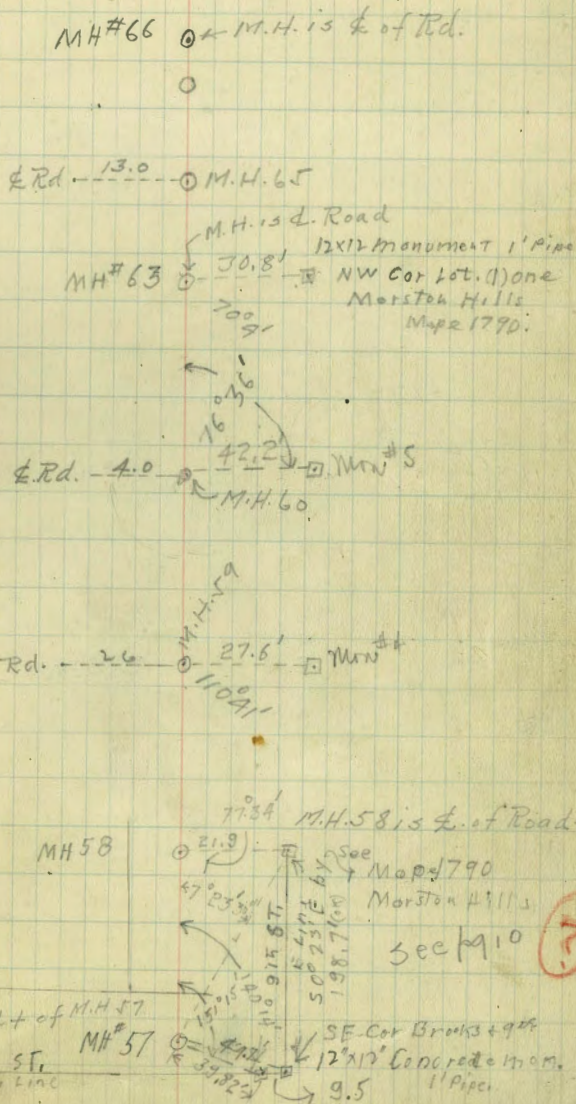 MH#66 M.H. is ℄ of Rd.
℄ Rd 13.0 M.H. 65
M.H. is ℄. Road
MH#63 30.8' 12x12 monument 1' Pipe
NW Cor Lot. (1) one
Morston Hills
Mape 1790.
70° 51'
76° 36'
℄.Rd. 4.0 42.2' Mon #5
M.H. 60
M.H. 59
Rd. 26 27.6' Mon
110° 41'
77° 34' M.H. 58 is ℄. of Road.
MH 58 21.9 See
Map 1790
Morston Hills
47° 23'
See pg 10
E Line by
S 0° 23' E
198.7
9th ST.
of M.H 57
MH# 57 SE Cor Brooks + 9th
ST. 39.82 12"x12" Concrete mon.
Line 1' Pipe
9.5